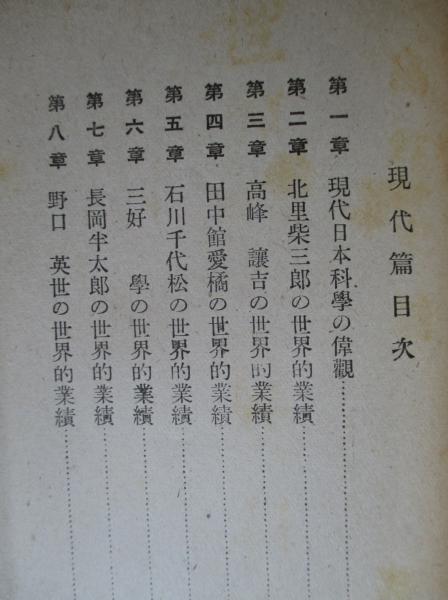 現代篇目次
第一章 現代日本科學の偉觀
第二章 北里柴三郎の世界的業績
第三章 高峰 讓吉の世界的業績
第四章 田中館愛橘の世界的業績
第五章 石川千代松の世界的業績
第六章 三好 學の世界的業績
第七章 長岡半太郎の世界的業績
第八章 野口 英世の世界的業績